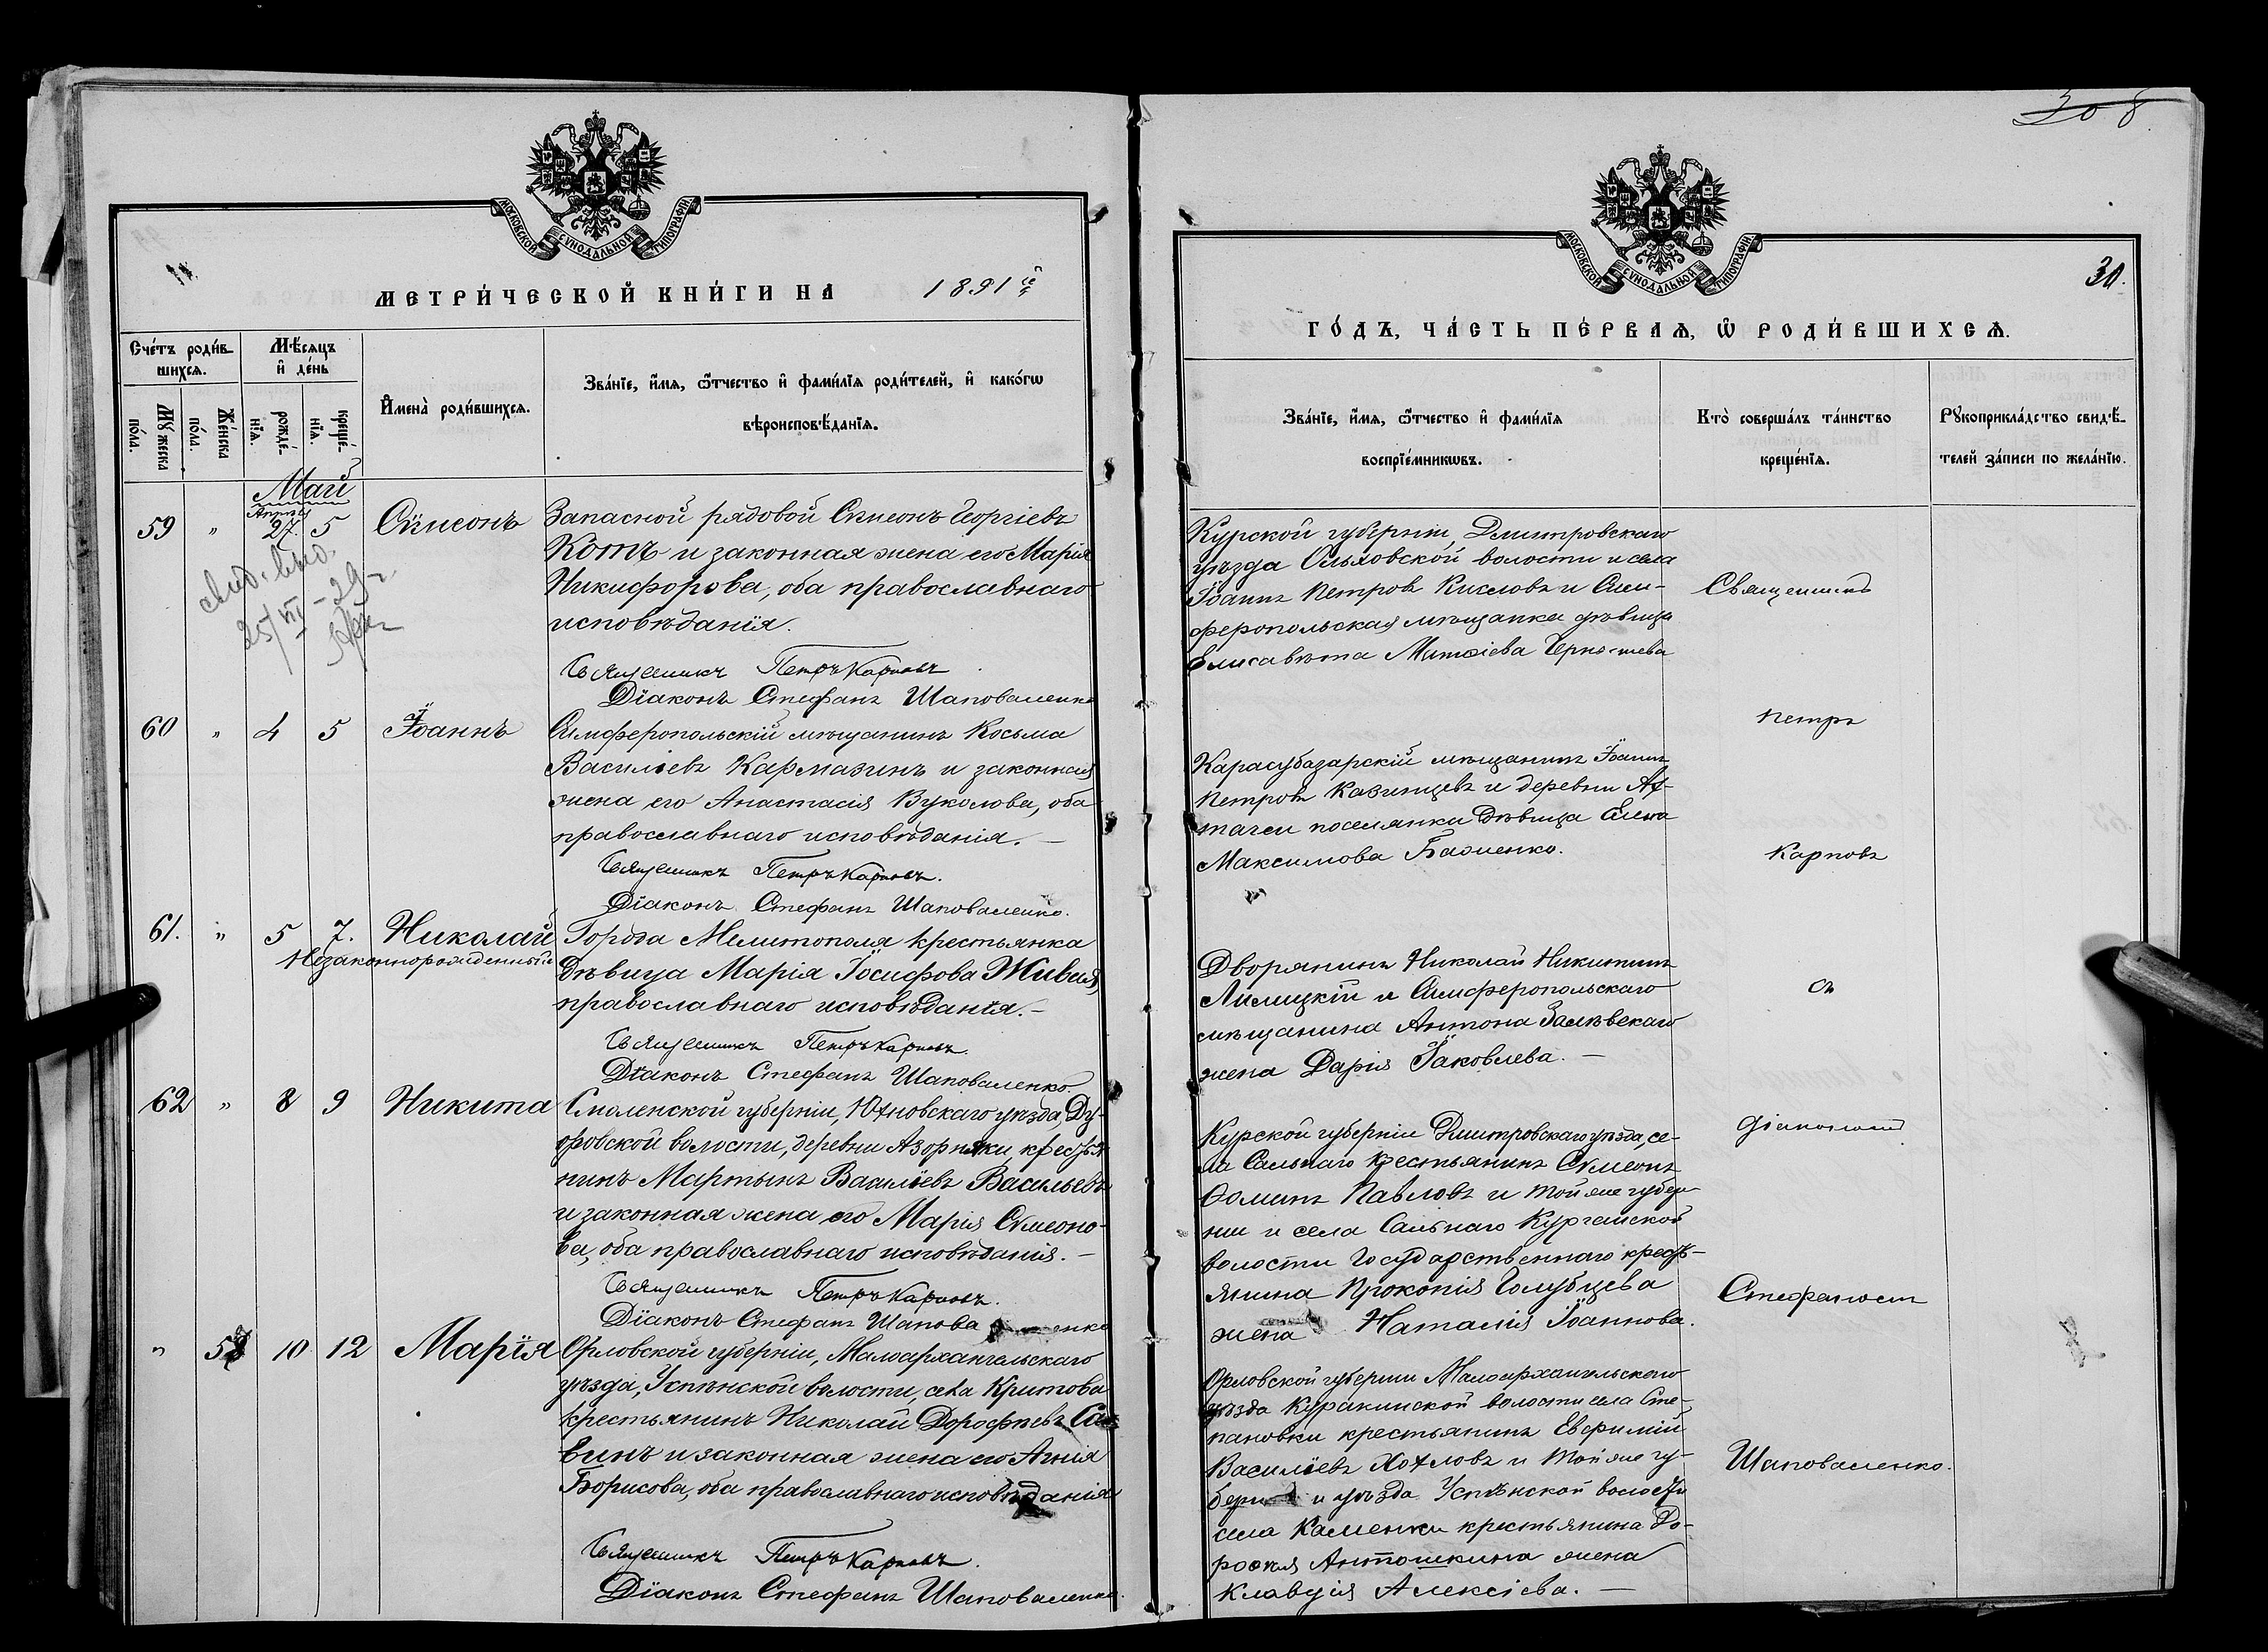 308
МОСКОВСКОЙ СѴНОДАЛЬНОЙ ТИПОГРАФІИ
МЕТРИ́ЧЕСКОЙ КНИ́ГИ НА 1891й
Сче́тъ роди́в-
шихсѧ.
Мѣ́сѧцъ
и҆ де́нь
Мꙋ́жеска
по́ла.
Же́нска
по́ла.
рожде́-
нїѧ.
креще́-
нїѧ.
И҆мена̀ роди́вшихсѧ.
Зва́нїе, и҆́мѧ, ѻ҆́тчество и҆ фами́лїѧ роди́телей, и҆ како́гѡ
вѣроисповѣ́данїѧ.
Май
59 " Апрѣль 27. 5 Сѵмеонъ
Запасной рядовой Сѵмеонъ Георгіевъ
Котъ и законная жена его Марія
Никифорова, оба православнаго
исповѣданія.
25/VII - 29 г.
Священникъ Петръ Карповъ
Діаконъ Стефанъ Шаповаленко
60 " 4 5 Іоаннъ
Симферопольскій мѣщанинъ Косьма
Василіевъ Кармазинъ и законная
жена его Анастасія Вуколова, оба
православнаго исповѣданія. —
Священникъ Петръ Карповъ.
Діаконъ Стефанъ Шаповаленко.
61. " 5 7. Николай
Незаконнорожденный
Города Мелитополя крестьянка
дѣвица Марія Іосифова Живая,
православнаго исповѣданія. —
Священникъ Петръ Карповъ.
Діаконъ Стефанъ Шаповаленко.
62 " 8 9 Никита
Смоленской губерніи, Юхновскаго уѣзда, Ду-
оровской волости, деревни Азорнаки, крестья
нинъ Мартынъ Василіевъ Васильевъ
и законная жена его Марія Сѵмеоно-
ва, оба православнаго исповѣданія. —
Священникъ Петръ Карповъ.
Діаконъ Стефанъ Шаповаленко
" 58 10 12 Марія
Орловской губерніи, Малоархангельскаго
уѣзда, Успѣнской волости, села Критова
крестьянинъ Николай Дорофѣевъ Сав
винъ и законная жена его Агнія
Борисова, оба православнаго исповѣданія
Священникъ Петръ Карповъ.
Діаконъ Стефанъ Шаповаленко.
МОСКОВСКОЙ СѴНОДАЛЬНОЙ ТИПОГРАФІИ.
30.
ГО́ДЪ, ЧА́СТЬ ПЕ́РВАѦ, Ѡ҆ РОДИ́ВШИХСѦ.
Зва́нїе, и҆́мѧ, ѻ҆́тчество и҆ фами́лїѧ
воспрїе́мникѡвъ.
Кто̀ соверша́лъ та́инство
креще́нїѧ.
Рꙋкоприкла́дство свидѣ́-
телей за́писи по жела́нїю.
Курской губерніи, Дмитровскаго
уѣзда Ольховской волости и села
Іоаннъ Петровъ Кисловъ и Сим-
феропольская мѣщанка дѣвица
Елисавета
Карасубазарскій мѣщанинъ Іоаннъ
Петровъ Казинцевъ и деревни Ат-
тачеи поселянки дѣвица Елена
Максимова Баоменко.
Дворянинъ Николай Никитинъ
Лимицкій и Симферопольскаго
мѣщанина Антона Залѣвскаго
жена Дарія Іаковлева. —
Курской губерніи Дмитровскаго уѣзда, се-
ла Сальнаго крестьянинъ Сѵмеонъ
Ѳоминъ Павловъ и той же губер
ніи и села Сальнаго Курганской
волости Государственнаго кресть-
янина Прокопія Голубцева
жена Наталія Іоаннова.
Орловской губерніи Малоархангельскаго
уѣзда Куракинской волости села Сте-
пановки крестьянинъ Евѳимій
Василіевъ Хохловъ и той же гу-
берніи и уѣзда Успѣнской волости
села Каменки крестьянина До-
роѳея Антошкина жена
Клавдія Алексіева. —
Священникъ
Петръ
Карповъ
съ
діакономъ
Стефаномъ
Шаповаленко.